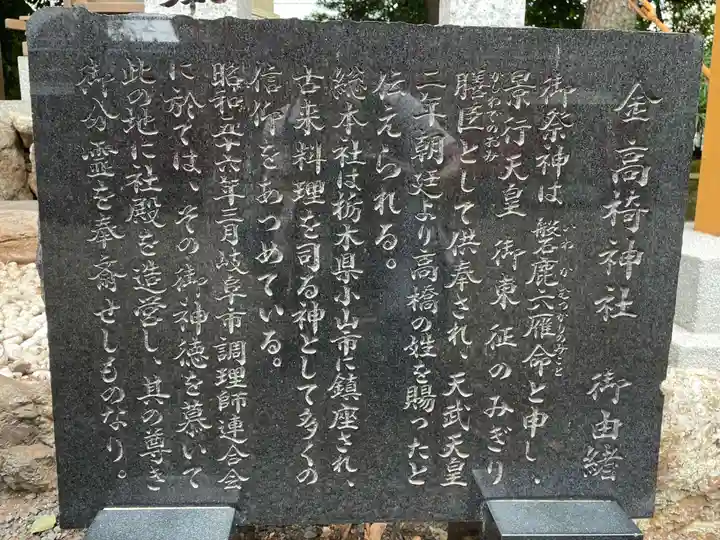 金高椅神社 御由緒
御祭神は 磐鹿六雁命と申し、
いわかむつかりのみこと
景行天皇 御東征のみぎり
膳臣として供奉され、天武天皇
かしわでのおみ
二年朝廷より高橋の姓を賜ったと
伝えられる。
総本社は栃木県小山市に鎮座され、
古来料理を司る神として多くの
信仰をあつめている。
昭和五十六年三月岐阜市調理師連合会
に於ては、その御神徳を慕いて
此の地に社殿を造営し、其の尊き
御分霊を奉斎せしものなり。